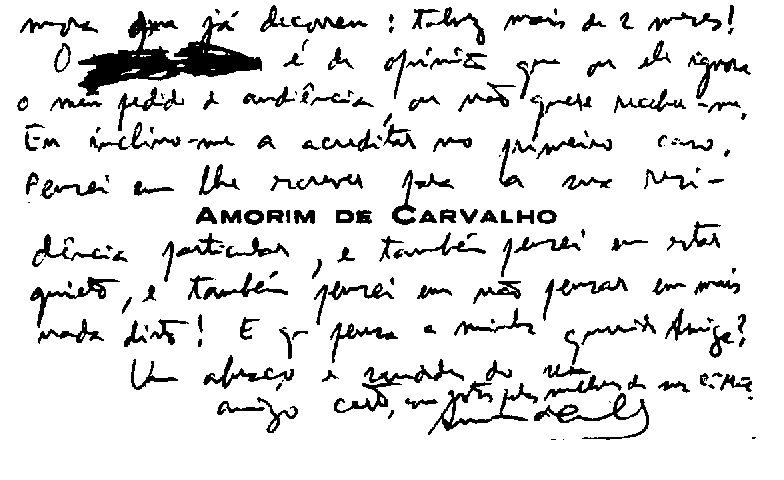 que já decorreu: talvez mais de 2 meses!
O é de opinião que ou ele ignora
o meu pedido de audiência, ou não quere receber-me.
Eu inclino-me a acreditar no primeiro caso.
Pensei em lhe escrever para a sua resi-
AMORIM DE CARVALHO
dência particular, e também pensei em estar
quieto, e também pensei em não pensar em mais
nada disto! E que pensa a minha querida Amiga?
Um abraço e saudades do seu
amigo certo, melhoras de sua